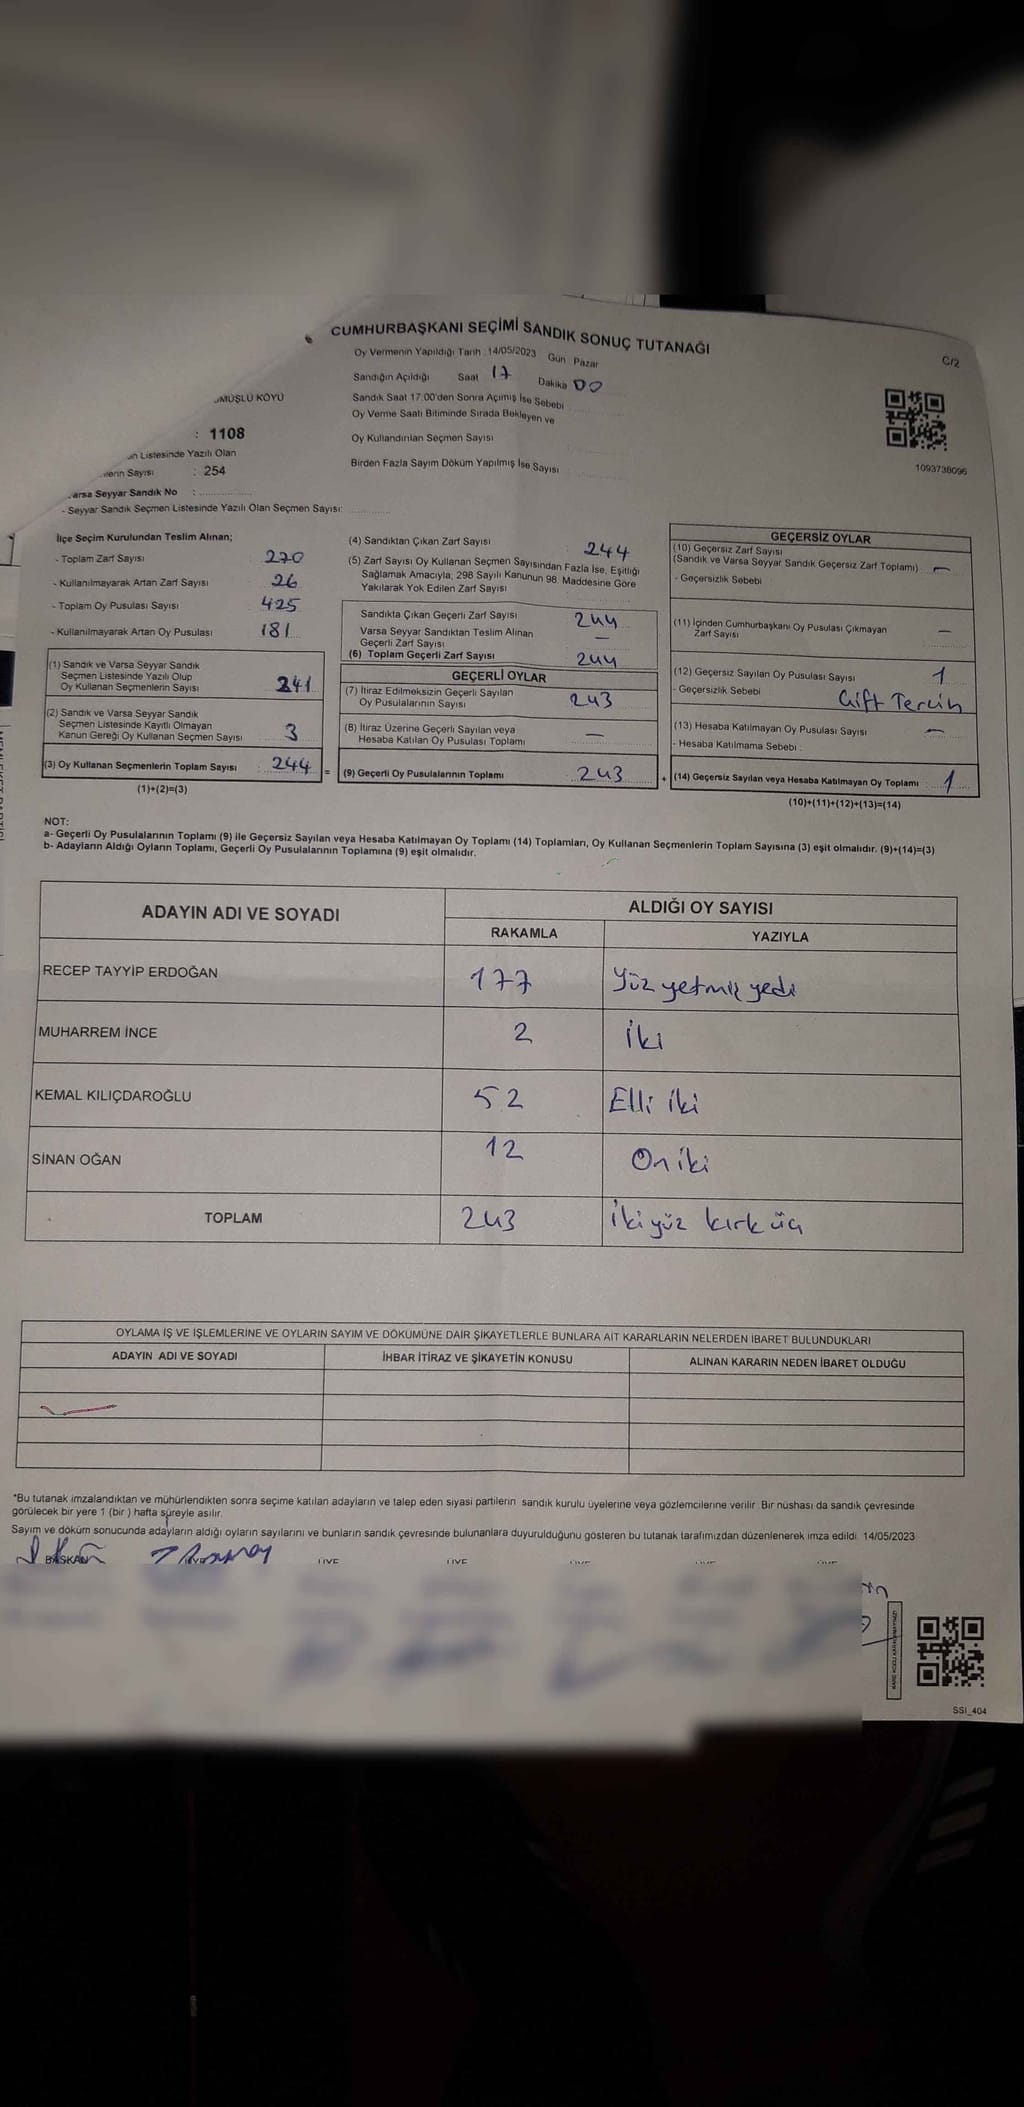 CUMHURBAŞKANI SEÇİMİ SANDIK SONUÇ TUTANAĞI
C/2
Oy Vermenin Yapıldığı Tarih : 14/05/2023 Gün : Pazar
Sandığın Açıldığı Saat 17 Dakika 00
Sandık Saat 17:00'den Sonra Açımış İse Sebebi
Oy Verme Saati Bitiminde Sırada Bekleyen ve
Oy Kullandırılan Seçmen Sayısı
Birden Fazla Sayım Döküm Yapılmış İse Sayısı
1093738096
KÖYÜ
: 1108
Listesinde Yazılı Olan
Sayısı : 254
Seyyar Sandık No :
- Seyyar Sandık Seçmen Listesinde Yazılı Olan Seçmen Sayısı:
İlçe Seçim Kurulundan Teslim Alınan;
- Toplam Zarf Sayısı 270
- Kullanılmayarak Artan Zarf Sayısı 26
- Toplam Oy Pusulası Sayısı 425
- Kullanılmayarak Artan Oy Pusulası 181
(1) Sandık ve Varsa Seyyar Sandık
Seçmen Listesinde Yazılı Olup
Oy Kullanan Seçmenlerin Sayısı 241
(2) Sandık ve Varsa Seyyar Sandık
Seçmen Listesinde Kayıtlı Olmayan
Kanun Gereği Oy Kullanan Seçmen Sayısı 3
(3) Oy Kullanan Seçmenlerin Toplam Sayısı : 244 =
(1)+(2)=(3)
(4) Sandıktan Çıkan Zarf Sayısı 244
(5) Zarf Sayısı Oy Kullanan Seçmen Sayısından Fazla İse, Eşitliği
Sağlamak Amacıyla, 298 Sayılı Kanunun 98. Maddesine Göre
Yakılarak Yok Edilen Zarf Sayısı
Sandıkta Çıkan Geçerli Zarf Sayısı 244
Varsa Seyyar Sandıktan Teslim Alınan
Geçerli Zarf Sayısı —
(6) Toplam Geçerli Zarf Sayısı 244
GEÇERLİ OYLAR
(7) İtiraz Edilmeksizin Geçerli Sayılan
Oy Pusulalarının Sayısı 243
(8) İtiraz Üzerine Geçerli Sayılan veya
Hesaba Katılan Oy Pusulası Toplamı —
(9) Geçerli Oy Pusulalarının Toplamı 243 +
GEÇERSİZ OYLAR
(10) Geçersiz Zarf Sayısı
(Sandık ve Varsa Seyyar Sandık Geçersiz Zarf Toplamı) —
- Geçersizlik Sebebi
(11) İçinden Cumhurbaşkanı Oy Pusulası Çıkmayan
Zarf Sayısı —
(12) Geçersiz Sayılan Oy Pusulası Sayısı 1
- Geçersizlik Sebebi Çift Tercih
(13) Hesaba Katılmayan Oy Pusulası Sayısı —
- Hesaba Katılmama Sebebi :
(14) Geçersiz Sayılan veya Hesaba Katılmayan Oy Toplamı 1
(10)+(11)+(12)+(13)=(14)
NOT:
a- Geçerli Oy Pusulalarının Toplamı (9) ile Geçersiz Sayılan veya Hesaba Katılmayan Oy Toplamı (14) Toplamları, Oy Kullanan Seçmenlerin Toplam Sayısına (3) eşit olmalıdır. (9)+(14)=(3)
b- Adayların Aldığı Oyların Toplamı, Geçerli Oy Pusulalarının Toplamına (9) eşit olmalıdır.
ADAYIN ADI VE SOYADI ALDIĞI OY SAYISI
RAKAMLA YAZIYLA
RECEP TAYYİP ERDOĞAN 177 Yüz yetmiş yedi
MUHARREM İNCE 2 İki
KEMAL KILIÇDAROĞLU 52 Elli iki
SİNAN OĞAN 12 On iki
TOPLAM 243 İkiyüz kırk üç
OYLAMA İŞ VE İŞLEMLERİNE VE OYLARIN SAYIM VE DÖKÜMÜNE DAİR ŞİKAYETLERLE BUNLARA AİT KARARLARIN NELERDEN İBARET BULUNDUKLARI
ADAYIN ADI VE SOYADI İHBAR İTİRAZ VE ŞİKAYETİN KONUSU ALINAN KARARIN NEDEN İBARET OLDUĞU
*Bu tutanak imzalandıktan ve mühürlendikten sonra seçime katılan adayların ve talep eden siyasi partilerin sandık kurulu üyelerine veya gözlemcilerine verilir. Bir nüshası da sandık çevresinde
görülecek bir yere 1 (bir ) hafta süreyle asılır.
Sayım ve döküm sonucunda adayların aldığı oyların sayılarını ve bunların sandık çevresinde bulunanlara duyurulduğunu gösteren bu tutanak tarafımızdan düzenlenerek imza edildi. 14/05/2023
BAŞKAN
SSI_404